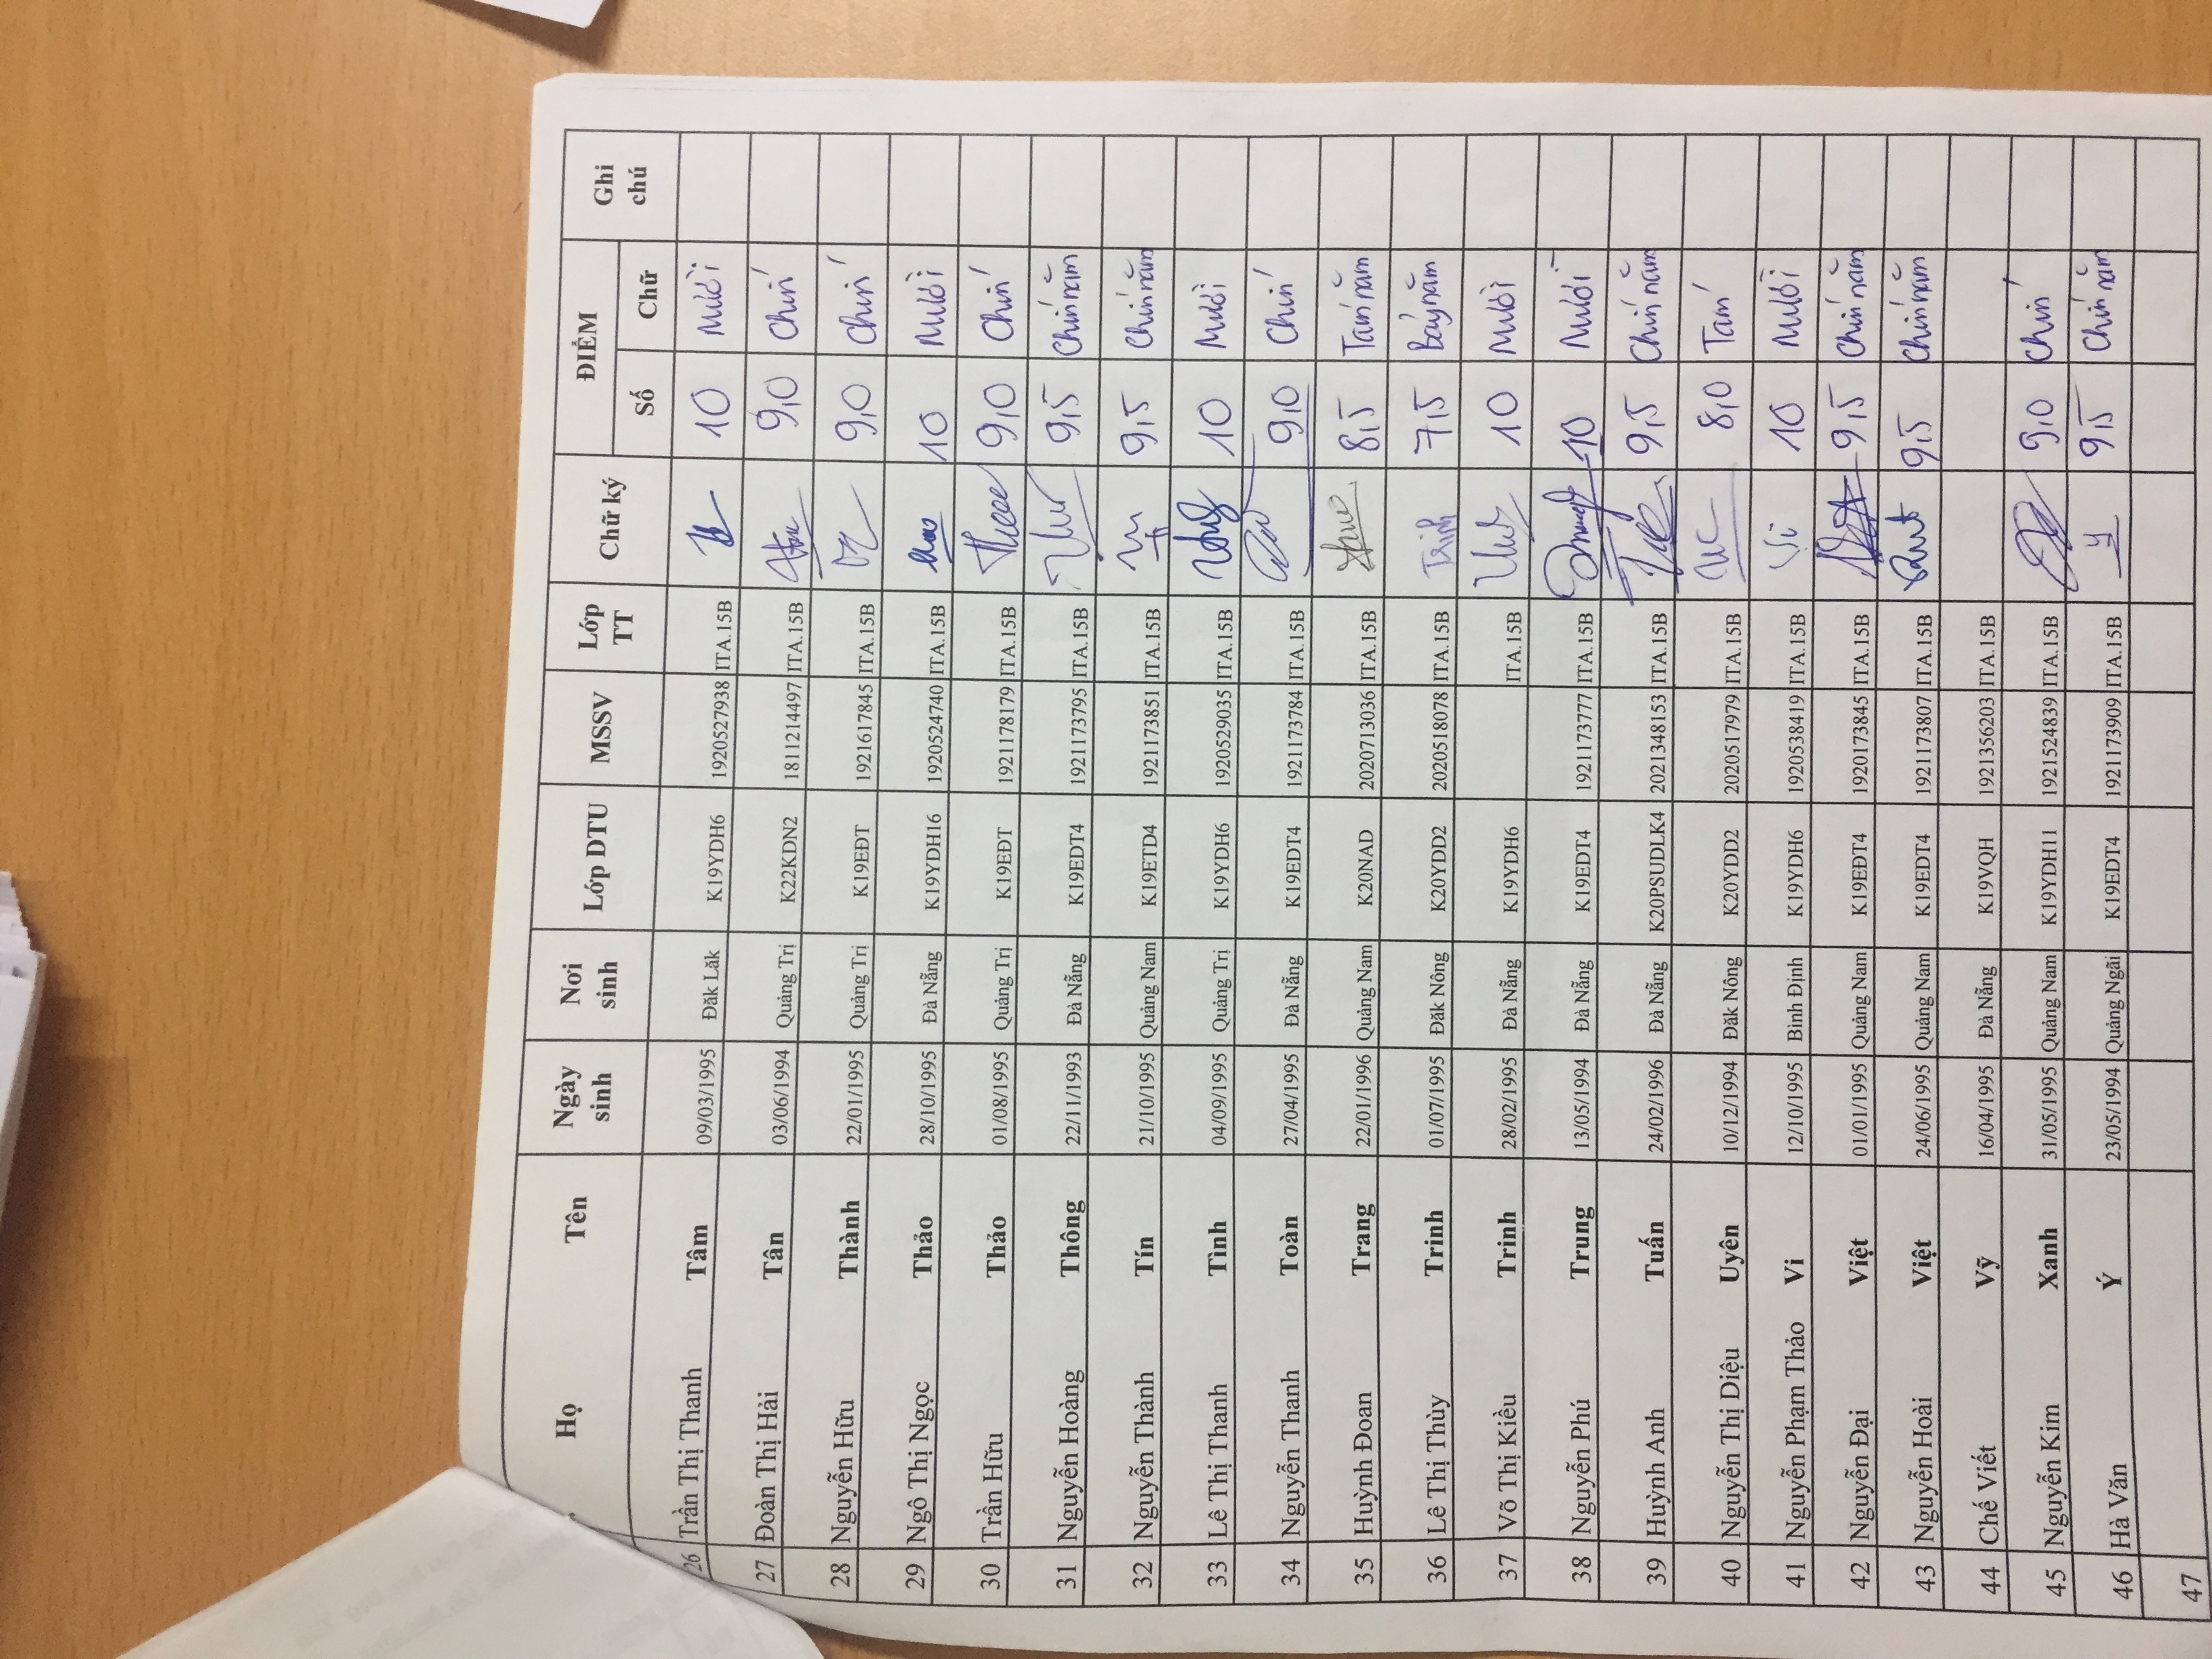 Họ Tên Ngày sinh Nơi sinh Lớp DTU MSSV Lớp TT Chữ ký ĐIỂM Ghi chú
Số Chữ
26 Trần Thị Thanh Tâm 09/03/1995 Đăk Lăk K19YDH6 1920527938 ITA.15B 10 Mười
27 Đoàn Thị Hải Tân 03/06/1994 Quảng Trị K22KDN2 1811214497 ITA.15B 9,0 Chín
28 Nguyễn Hữu Thành 22/01/1995 Quảng Trị K19EĐT 1921617845 ITA.15B 9,0 Chín
29 Ngô Thị Ngọc Thảo 28/10/1995 Đà Nẵng K19YDH16 1920524740 ITA.15B 10 Mười
30 Trần Hữu Thảo 01/08/1995 Quảng Trị K19EĐT 1921178179 ITA.15B 9,0 Chín
31 Nguyễn Hoàng Thông 22/11/1993 Đà Nẵng K19EDT4 1921173795 ITA.15B 9,5 Chín năm
32 Nguyễn Thành Tín 21/10/1995 Quảng Nam K19ETD4 1921173851 ITA.15B 9,5 Chín năm
33 Lê Thị Thanh Tình 04/09/1995 Quảng Trị K19YDH6 1920529035 ITA.15B 10 Mười
34 Nguyễn Thanh Toàn 27/04/1995 Đà Nẵng K19EDT4 1921173784 ITA.15B 9,0 Chín
35 Huỳnh Đoan Trang 22/01/1996 Quảng Nam K20NAD 2020713036 ITA.15B 8,5 Tám năm
36 Lê Thị Thùy Trinh 01/07/1995 Đăk Nông K20YDD2 2020518078 ITA.15B Trinh 7,5 Bảy năm
37 Võ Thị Kiều Trinh 28/02/1995 Đà Nẵng K19YDH6 ITA.15B 10 Mười
38 Nguyễn Phú Trung 13/05/1994 Đà Nẵng K19EDT4 1921173777 ITA.15B 10 Mười
39 Huỳnh Anh Tuấn 24/02/1996 Đà Nẵng K20PSUDLK4 2021348153 ITA.15B 9,5 Chín năm
40 Nguyễn Thị Diệu Uyên 10/12/1994 Đăk Nông K20YDD2 2020517979 ITA.15B 8,0 Tám
41 Nguyễn Phạm Thảo Vi 12/10/1995 Bình Định K19YDH6 1920538419 ITA.15B Vi 10 Mười
42 Nguyễn Đại Việt 01/01/1995 Quảng Nam K19EĐT4 1920173845 ITA.15B 9,5 Chín năm
43 Nguyễn Hoài Việt 24/06/1995 Quảng Nam K19EDT4 1921173807 ITA.15B 9,5 Chín năm
44 Chế Viết Vỹ 16/04/1995 Đà Nẵng K19VQH 1921356203 ITA.15B
45 Nguyễn Kim Xanh 31/05/1995 Quảng Nam K19YDH11 1921524839 ITA.15B 9,0 Chín
46 Hà Văn Ý 23/05/1994 Quảng Ngãi K19EDT4 1921173909 ITA.15B 9,5 Chín năm
47